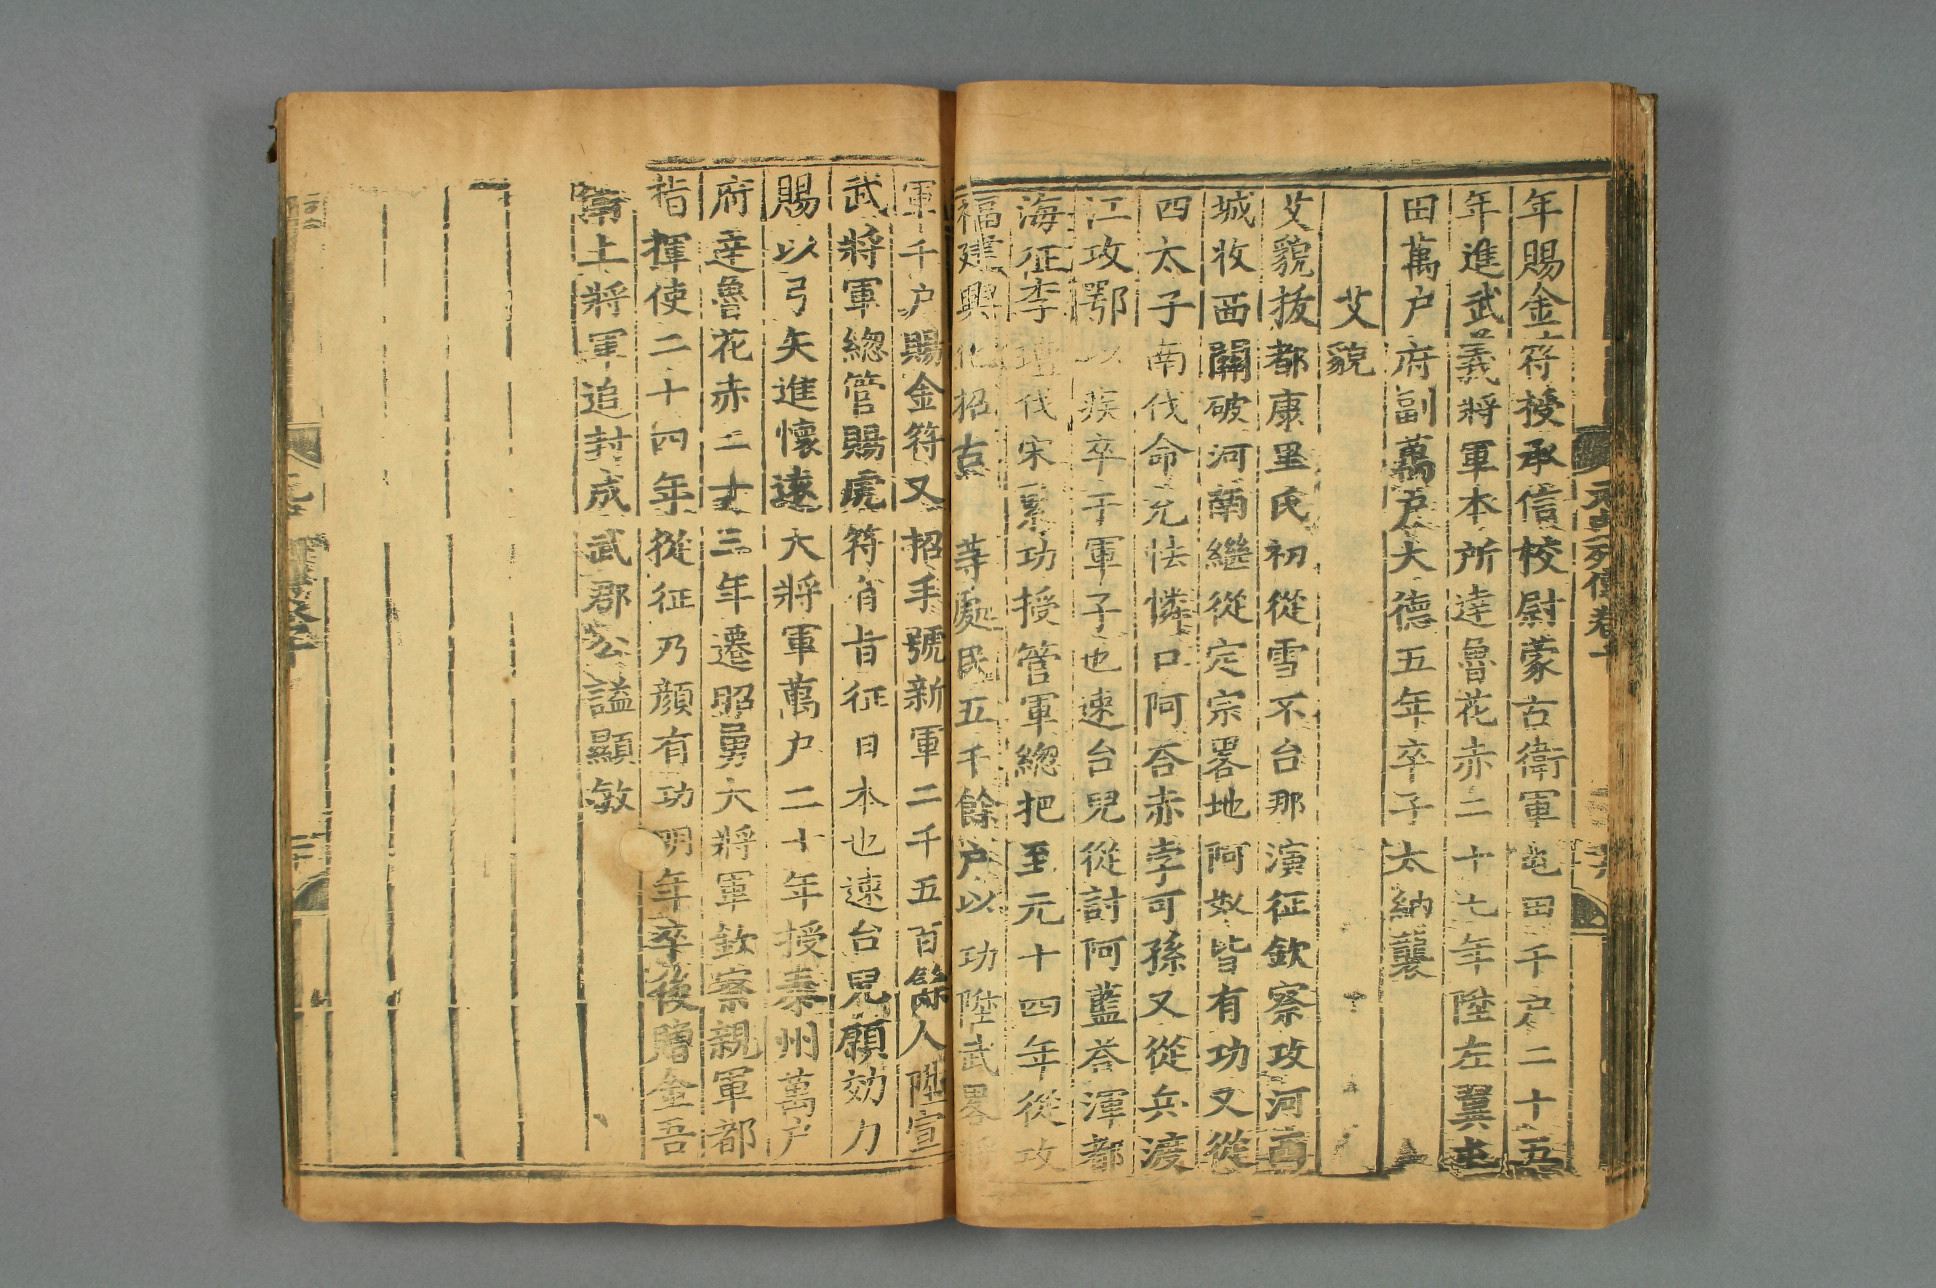 年賜金符授承信校尉蒙古衛軍屯田千户二十五
年進武義將軍本所達魯花赤二十七年陞左翼屯
田萬户府副萬户大德五年卒子太納襲
艾貌
艾貌拔都康里氏初從雪不台那演征欽察攻河西
城收西關破河南繼從定宗畧地阿奴皆有功又從
四太子南伐命充怯憐口阿荅赤孛可孫又從兵渡
江攻鄂以疾卒于軍子也速台兒從討阿藍荅渾都
海征李璮伐宋累功授管軍總把至元十四年從攻
福建興化招古 等處民五千餘户以功陞武畧將
軍千户賜金符又招手號新軍二千五百餘人陞宣
武將軍總管賜虎符有旨征日本也速台兒願効力
賜以弓矢進懷遠大將軍萬户二十年授泰州萬户
府達魯花赤二十三年遷昭勇大將軍欽察親軍都
指揮使二十四年從征乃顔有功明年卒後贈金吾
衛上將軍追封成武郡公謚顯敏
元史列傳卷十